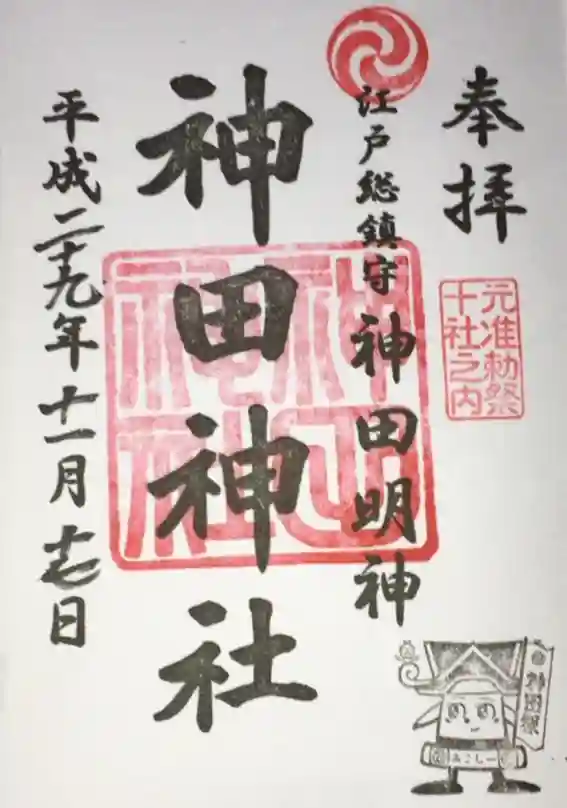 奉拝
元准勅祭
十社之内
江戸総鎮守 神田明神
神田神社
平成二十九年十一月十七日
神田祭
みこしー